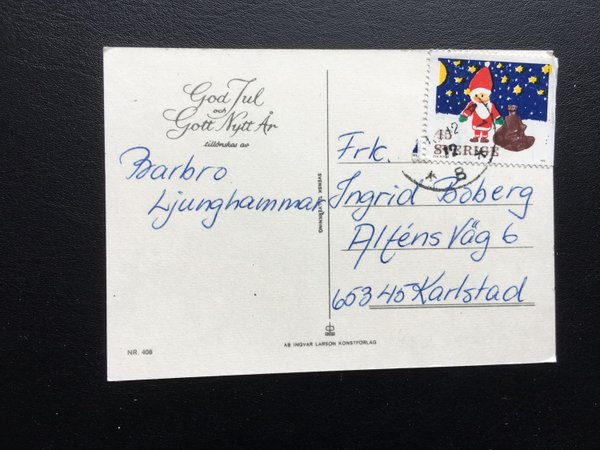 God Jul
och
Gott Nytt År
tillönskas av
Barbro
Ljunghammar
SVENSK
NR. 408
AB INGVAR LARSON KONSTFÖRLAG
45
SVERIGE
12
8
Frk.
Ingrid Boberg
Alféns Väg 6
653 45 Karlstad